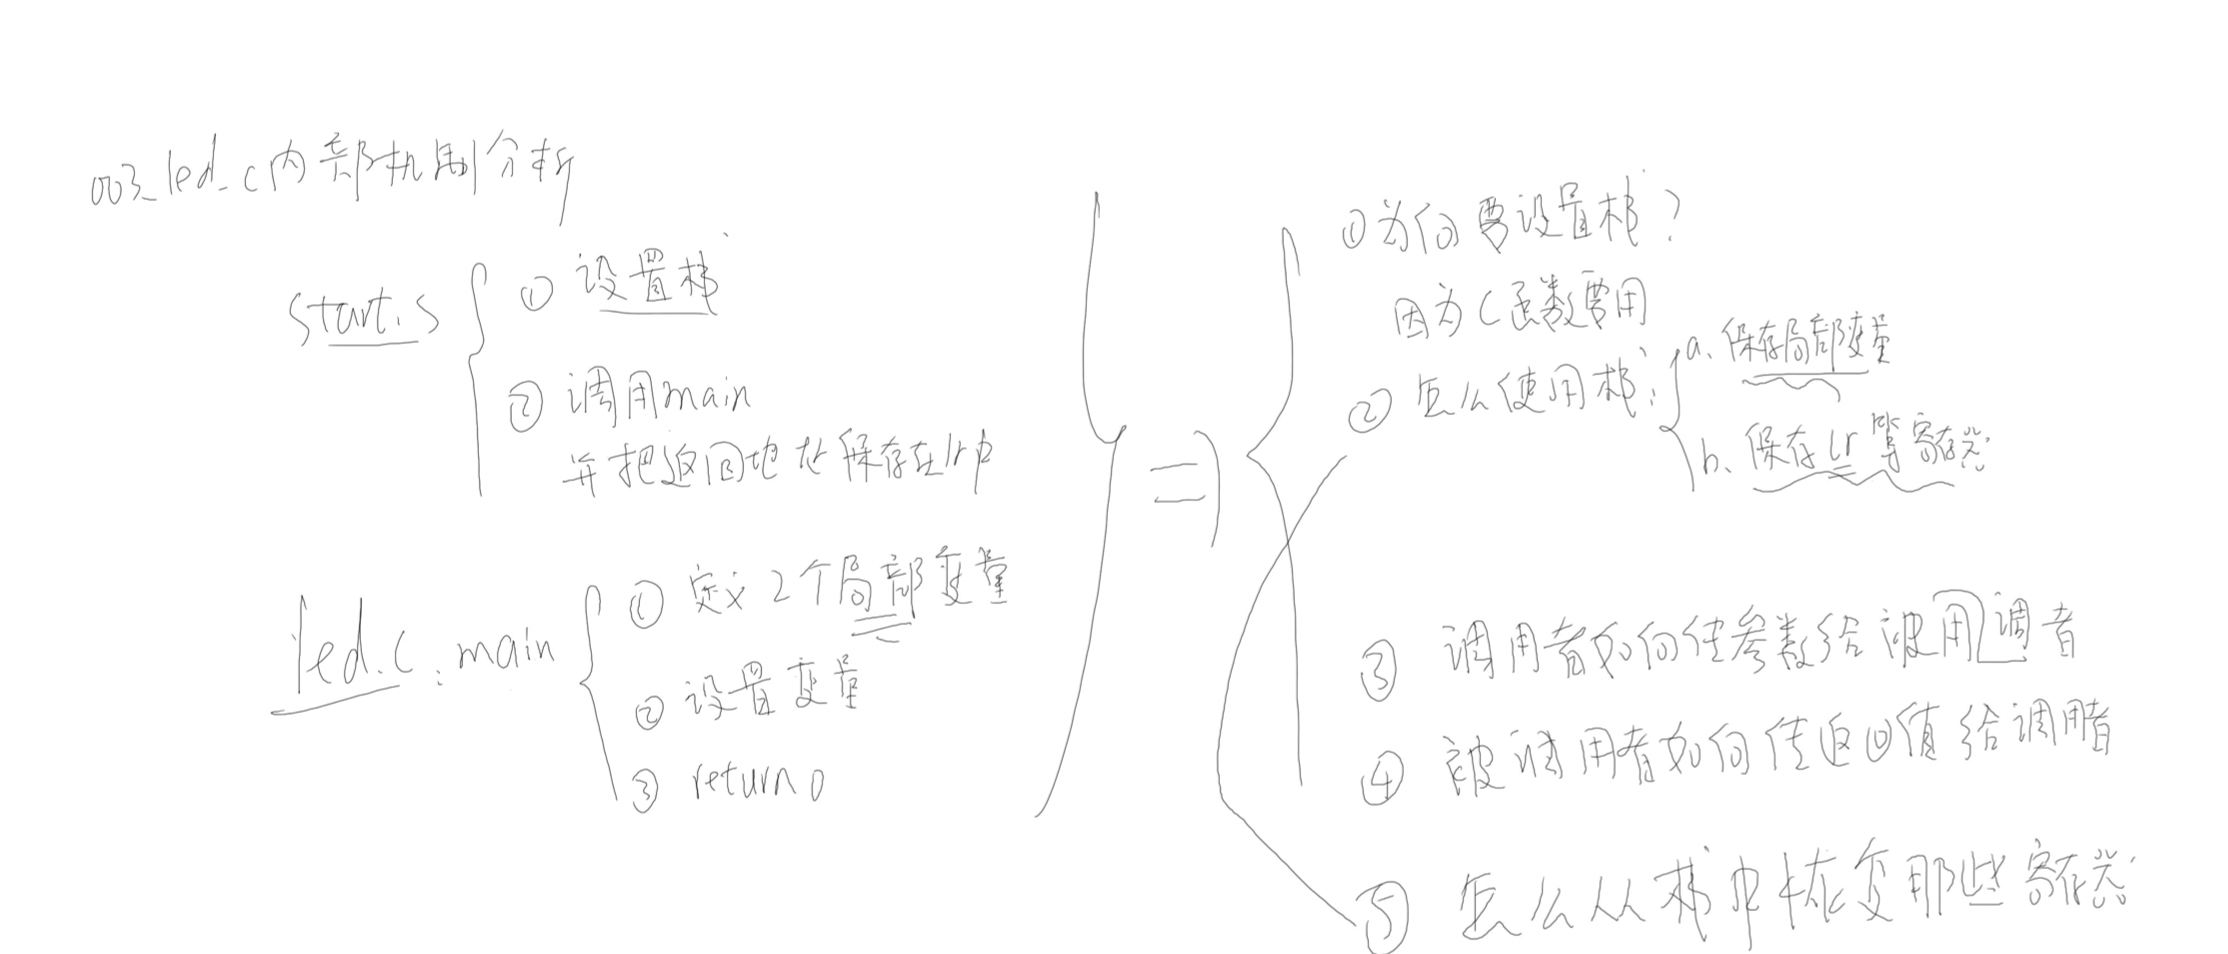 003_led_c内部机制分析
start.s
① 设置栈
② 调用main
并把返回地址保存在lr中
led.c:main
① 定义2个局部变量
② 设置变量
③ return 0
=>
①为何要设置栈?
因为C函数要用
② 怎么使用栈:
a、保存局部变量
b、保存lr等寄存器
③ 调用者如何传参数给被用调者
④ 被调用者如何传返回值给调用者
⑤ 怎么从栈中恢复那些寄存器